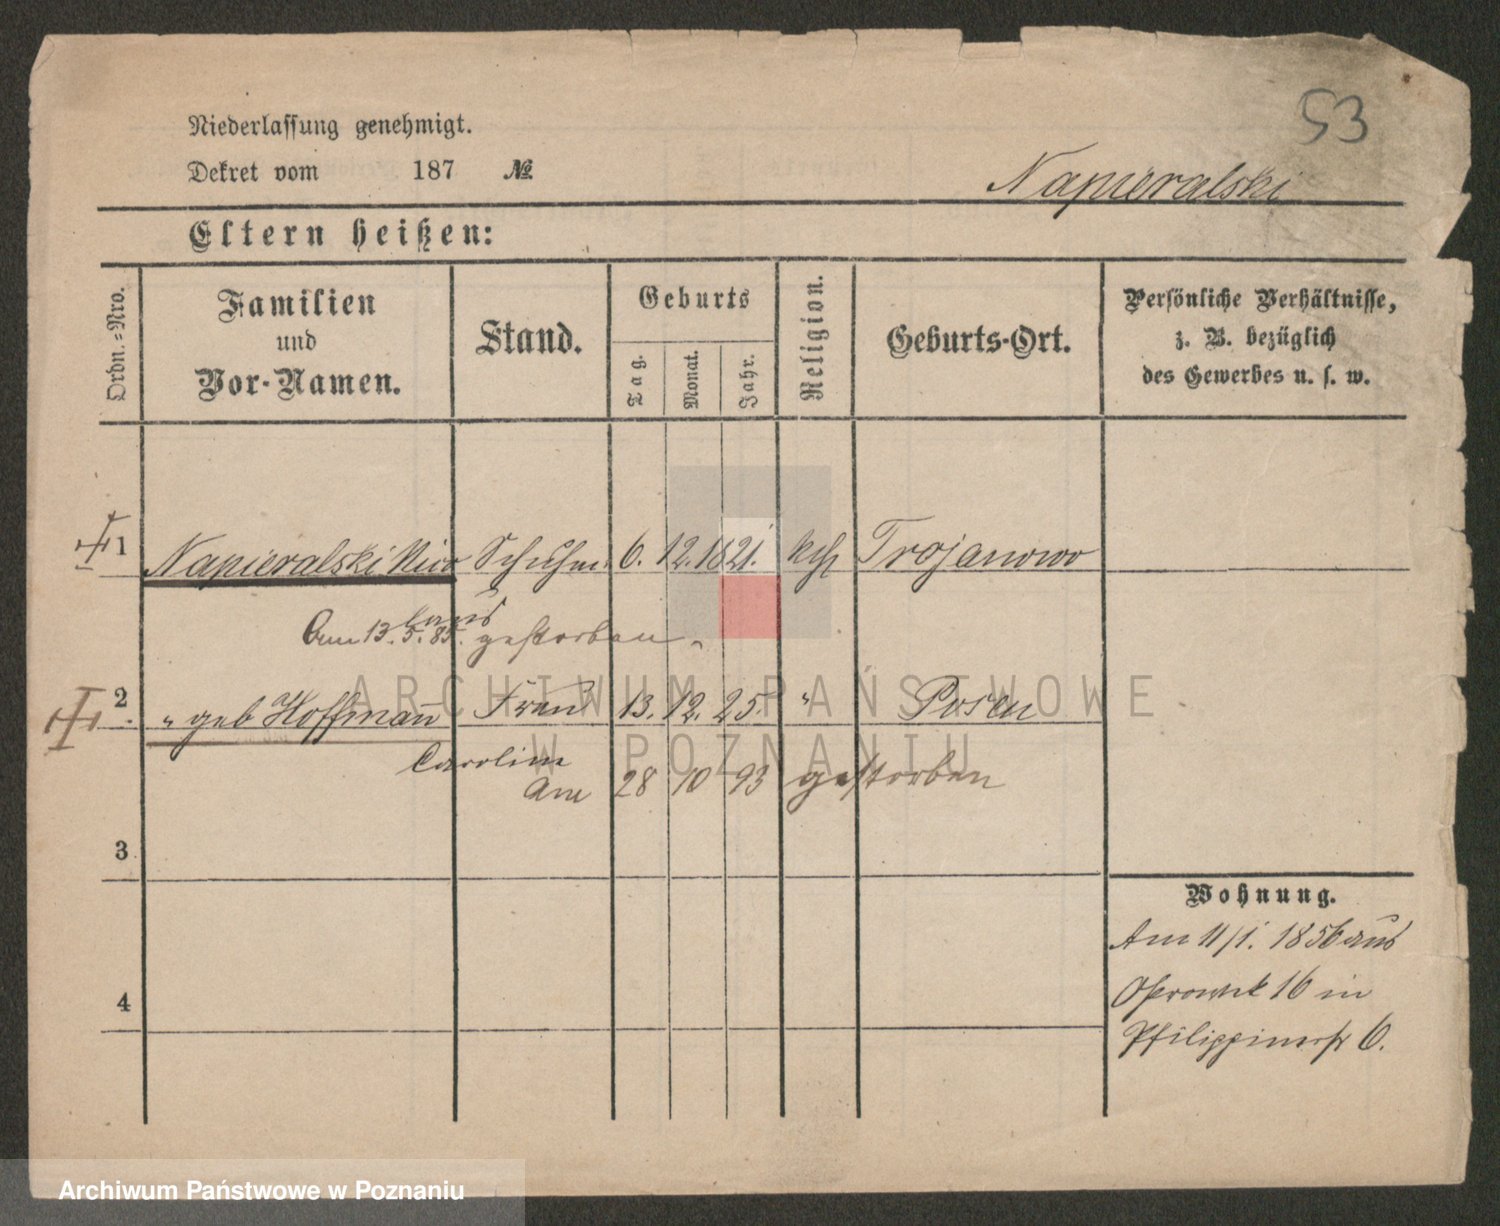 53
Niederlassung genehmigt.
Dekret vom 187 №
Napieralski
Eltern heißen:
Ordn.=Nro.
Familien
und
Vor-Namen.
Stand.
Geburts
Tag.
Monat.
Jahr.
Religion.
Geburts-Ort.
Persönliche Verhältnisse,
z. B. bezüglich
des Gewerbes u. s. w.
1 Napieralski Nico Schuhm. 6. 12. 1821. kth Trojanowo
laus
Am 13. 5. 85. gestorben.
2 " geb Hoffmann Frau 13. 12. 25. " Posen
Caroline
Am 28 10 93 gestorben
3
4
Wohnung.
Am 11/1. 1856 aus
16 in
Philippinerstr 6.
ARCHIWUM PAŃSTWOWE
W POZNANIU
Archiwum Państwowe w Poznaniu